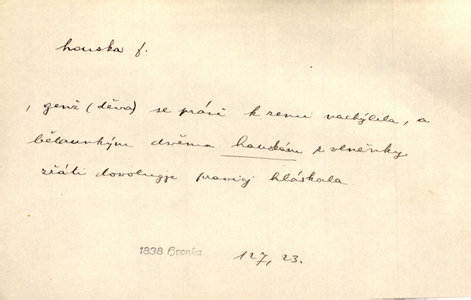 houska f.
, genž (děva) se práwě k zemi nachýlila, a
bělaunkým dvěma hauskám z vlněnky
zřáti dovolugje pravig hláskala
1838 Hronka
127, 23.